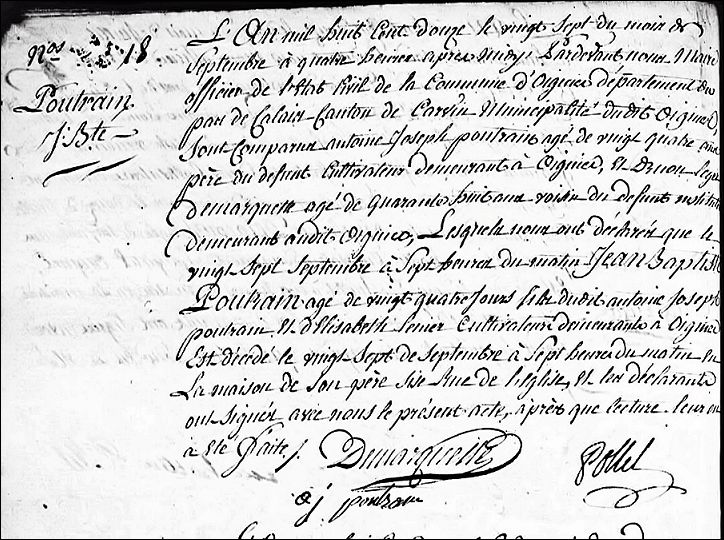 Nos 18
Poutrain
J. Bte
L'An mil huit Cent douze le vingt Sept du mois de
Septembre à quatre heures après midy Pardevant nous Maire
officier de l'Etat Civil de la Commune d'Oignies departement du
pas de Calais Canton de Carvin Municipalité dudit Oignies
Sont Comparus antoine Joseph poutrain agé de vingt quatre ans
père du defunt Cultivateur demeurant à Oignies, Et Druon
demarquette agé de quarante huit ans voisin du defunt
demeurant audit Oignies, Lesquels nous ont declarés que le
vingt Sept Septembre à Sept heures du matin Jean Baptiste
Poutrain agé de vingt quatre Jours fils dudit antoine Joseph
poutrain Et d'Elisabeth Cultivateurs demeurants à Oignies
Est décédé le vingt Sept de Septembre à Sept heures du matin en
La maison de Son père Sise Rue de l'église, Et les déclarants
ont Signés avec nous le présent acte, après que lecture leur en
a Eté faite /.
Demarquette
Pollet
a j poutrain